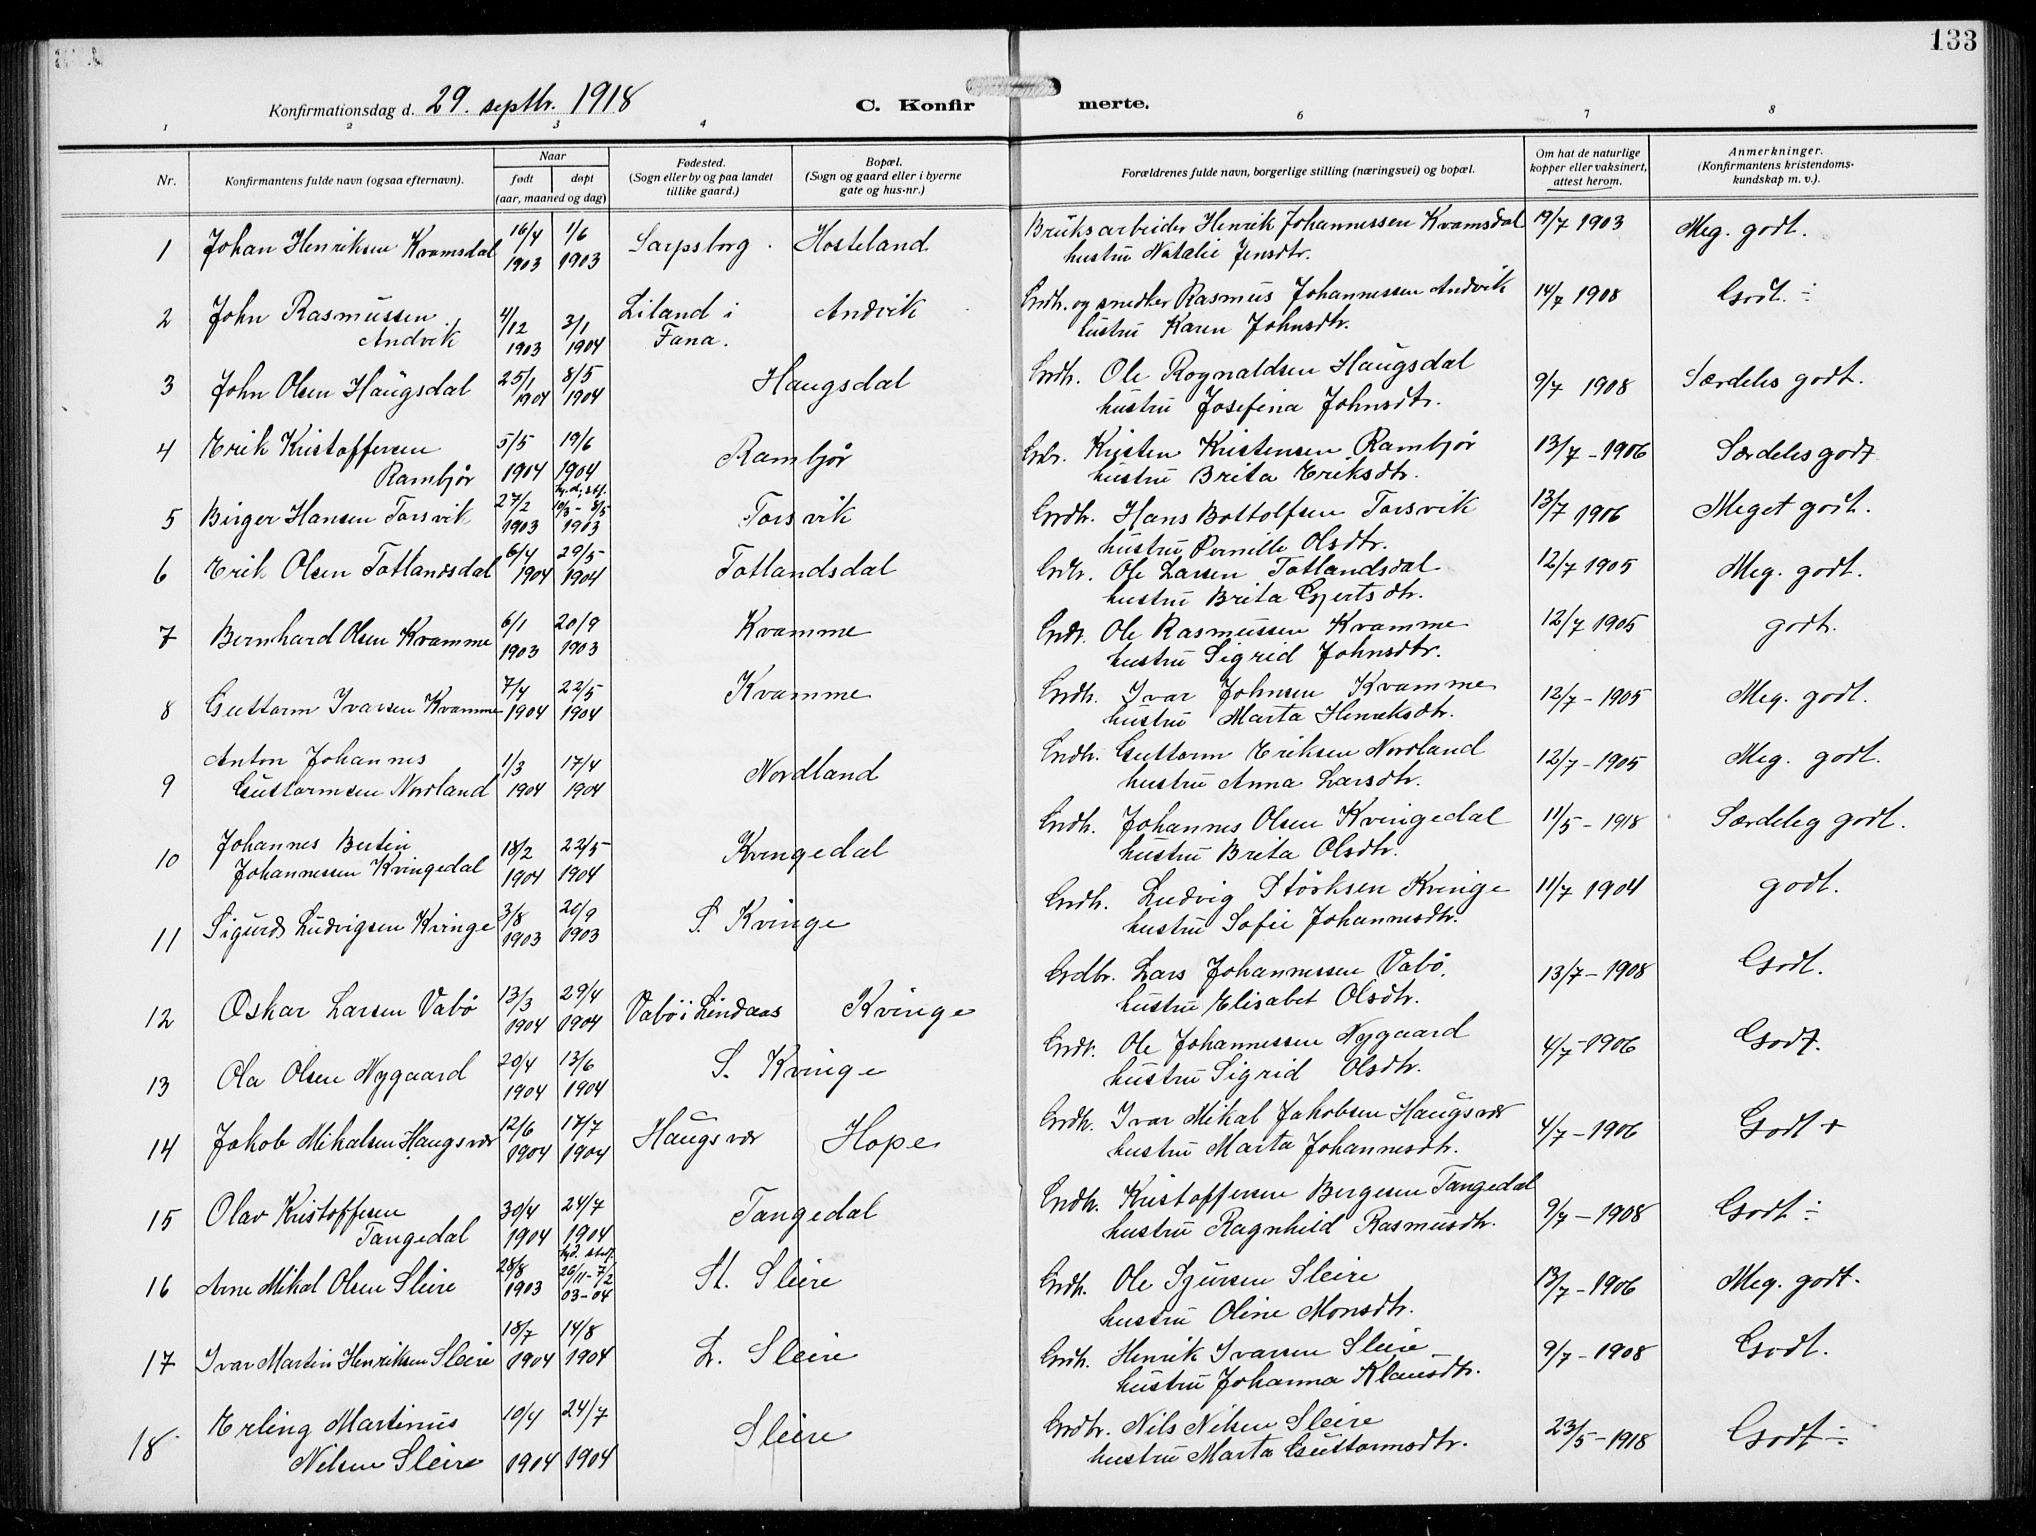 133
Konfirmationsdag d. 29. septbr. 1918
C. Konfirmerte.
1 2 3 4 6 7 8
Nr.
Konfirmantens fulde navn (ogsaa efternavn).
Naar
født
døpt
(aar, maaned og dag)
Fødested.
(Sogn eller by og paa landet
tillike gaard.)
Bopæl.
(Sogn og gaard eller i byerne
gate og hus-nr.)
Forældrenes fulde navn, borgerlige stilling (næringsvei) og bopæl.
Om hat de naturlige
kopper eller vaksinert,
attest herom.
Anmerkninger.
(Konfirmantens kristendoms-
kundskap m. v.).
1 Johan Henriksen Kvamsdal 16/4 1903 1/6 1903 Sarpsborg. Hosteland Bruksarbeider Henrik Johannessen Kvamsdal 19/7 1903 Meg. godt.
hustru Natalie Jensdtr.
2 John Rasmussen 4/12 1903 3/1 1904 Liland i Andvik Grdbr. og snedker Rasmus Johannessen Andvik 14/7 1908 Godt. ÷
Andvik Fana. hustru Karen Johnsdtr.
3 John Olsen Haugsdal 25/1 1904 8/5 1904 Haugsdal Grdbr. Ole Rognaldsen Haugsdal 9/7 1908 Særdeles godt.
hustru Josefina Johnsdtr.
4 Erik Kristoffersen 5/5 1904 19/6 1904 Rambjør Grbr. Kristen Kristensen Rambjør 13/7 - 1906 Særdeles godt
Rambjør hustru Brita Eriksdtr.
5 Birger Hansen Torsvik 27/2 1903 19/3 - 8/5 1903 Torsvik Grdbr. Hans Bottolfsen Torsvik 13/7 1906 Meget godt.
hustru Pernille Olsdtr.
6 Erik Olsen Totlandsdal 6/4 1904 29/5 1904 Totlandsdal Grdbr. Ole Larsen Totlandsdal 12/7 1905 Meg. godt.
hustru Brita Gjertsdtr.
7 Bernhard Olsen Kvamme 6/1 1903 20/9 1903 Kvamme Grdbr. Ole Rasmussen Kvamme 12/7 1905 godt.
hustru Sigrid Johnsdtr.
8 Guttorm Ivarsen Kvamme 7/4 1904 22/5 1904 Kvamme Grdbr. Ivar Johnsen Kvamme 12/7 - 1905 Meg. godt.
hustru Marta Henriksdtr.
9 Anton Johannes 1/3 1904 17/4 1904 Nordland Grdbr. Guttorm Eriksen Nordland 12/7 - 1905 Meg. godt.
Guttormsen Nordland hustru Anna Larsdtr.
10 Johannes Bertin 18/2 1904 22/5 1904 Kvingedal Grdbr. Johannes Olsen Kvingedal 11/5 - 1918 Særdeles godt.
Johannessen Kvingedal hustru Brita Olsdtr.
11 Sigurd Ludvigsen Kvinge 3/8 1903 20/9 1903 S. Kvinge Grdbr. Ludvig Størksen Kvinge 11/7 1904 godt.
hustru Sofie Johannesdtr.
12 Oskar Larsen Vabø 13/3 1904 29/4 1904 Vabø i Lindaas Kvinge Grdbr. Lars Johannessen Vabø. 13/7 - 1908 Godt.
hustru Elisabet Olsdtr.
13 Ola Olsen Nygaard 20/4 1904 13/6 1904 S. Kvinge Grdbr. Ole Johannessen Nygaard 4/7 - 1906 Godt.
hustru Sigrid Olsdtr.
14 Jakob Mikalsen Haugsvær 12/6 1904 17/7 1904 Haugsvær Hope Grdbr. Ivar Mikal Jakobsen Haugsvær 4/7 - 1906 Godt +
hustru Marta Johannesdtr.
15 Olav Kristoffersen 30/4 1904 24/7 1904 Tangedal Grdbr. Kristoffersen Bergesen Tangedal 9/7 - 1908 Godt ÷
Tangedal hustru Ragnhild Rasmusdtr.
16 Arne Mikal Olsen Sleire 28/8 1903 26/11 - 7/2 03-04 St. Sleire Grdbr. Ole Sjursen Sleire 13/7 - 1906 Meg. godt.
hustru Oline Monsdtr.
17 Ivar Martin Henriksen Sleire 18/7 1904 14/8 1904 L. Sleire Grdbr. Henrik Ivarsen Sleire 9/7 - 1908 Godt.
hustru Johanna Klausdtr.
18 Erling Martinus 10/4 1904 24/7 1904 Sleire Grdbr. Nils Nilsen Sleire 23/5 - 1918 Godt ÷
Nilsen Sleire hustru Marta Guttormsdtr.